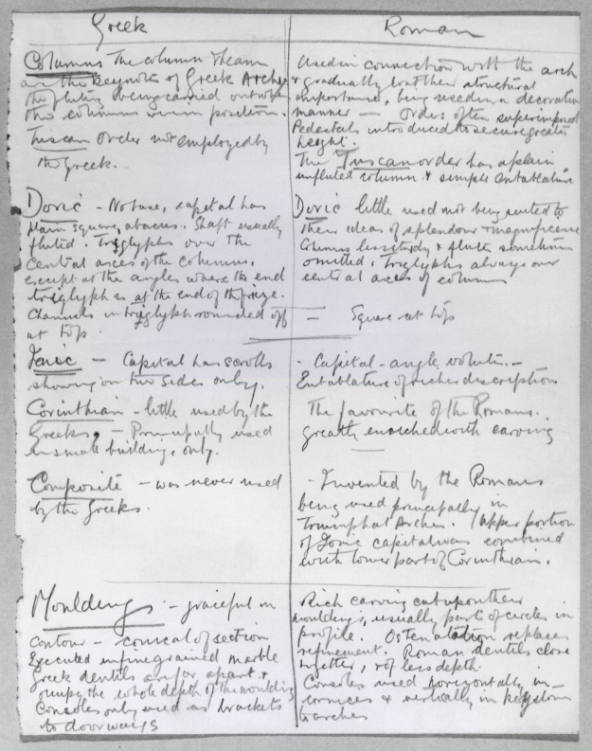 Greek
Columns The column & beam
are the keynotes of Greek Arch,
the fluting being carried out when
the columns were in position.
Tuscan Order not employed by
the Greek.
Doric - No base, capital has
plain square abacus. Shaft usually
fluted. Triglyphs over the
central axes of the columns,
except at the angles where the end
triglyph is at the end of the frieze.
Channels in triglyph rounded off
at top.
Ionic - Capital has scrolls
showing on two sides only.
Corinthian - little used by the
Greeks, - Principally used
in small buildings only.
Composite - was never used
by the Greeks.
Mouldings - graceful in
contour - conical of section
Executed in fine grained marble
Greek dentils are far apart &
occupy the whole depth of the moulding
Consoles only used as brackets
to doorways
Roman
Used in connection with the arch
& gradually lost their structural
importance, being used in a decorative
manner - Orders often superimposed
Pedestals introduced to secure greater
height.
The Tuscan order has a plain
unfluted column & simple entablature
Doric little used not being suited to
their ideas of splendour & magnificence
Column less sturdy & flutes sometimes
omitted. Triglyphs always over
central axes of columns
- Square at top
- Capital - angle volutes. -
Entablature of richer description
The favourite of the Romans.
Greatly enriched with carving
- Invented by the Romans
being used principally in
Triumphal Arches. Upper portion
of Ionic capital was combined
with lower part of Corinthian.
Rich carving cut upon their
mouldings, usually parts of circles in
profile. Ostentation replaces
refinement. Roman dentils close
together, & of less depth.
Consoles used horizontally in
cornices & vertically in keystones
to arches